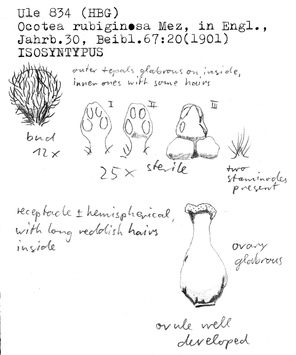 Ule 834 (HBG)
Ocotea rubiginosa Mez, in Engl.,
Jahrb.30, Beibl.67:20(1901)
ISOSYNTYPUS
outer tepals glabrous on inside,
inner ones with some hairs
I II III
bud
12x
25x sterile
two
staminodes
present
receptacle ± hemispherical,
with long reddish hairs
inside
ovary
glabrous
ovule well
developed